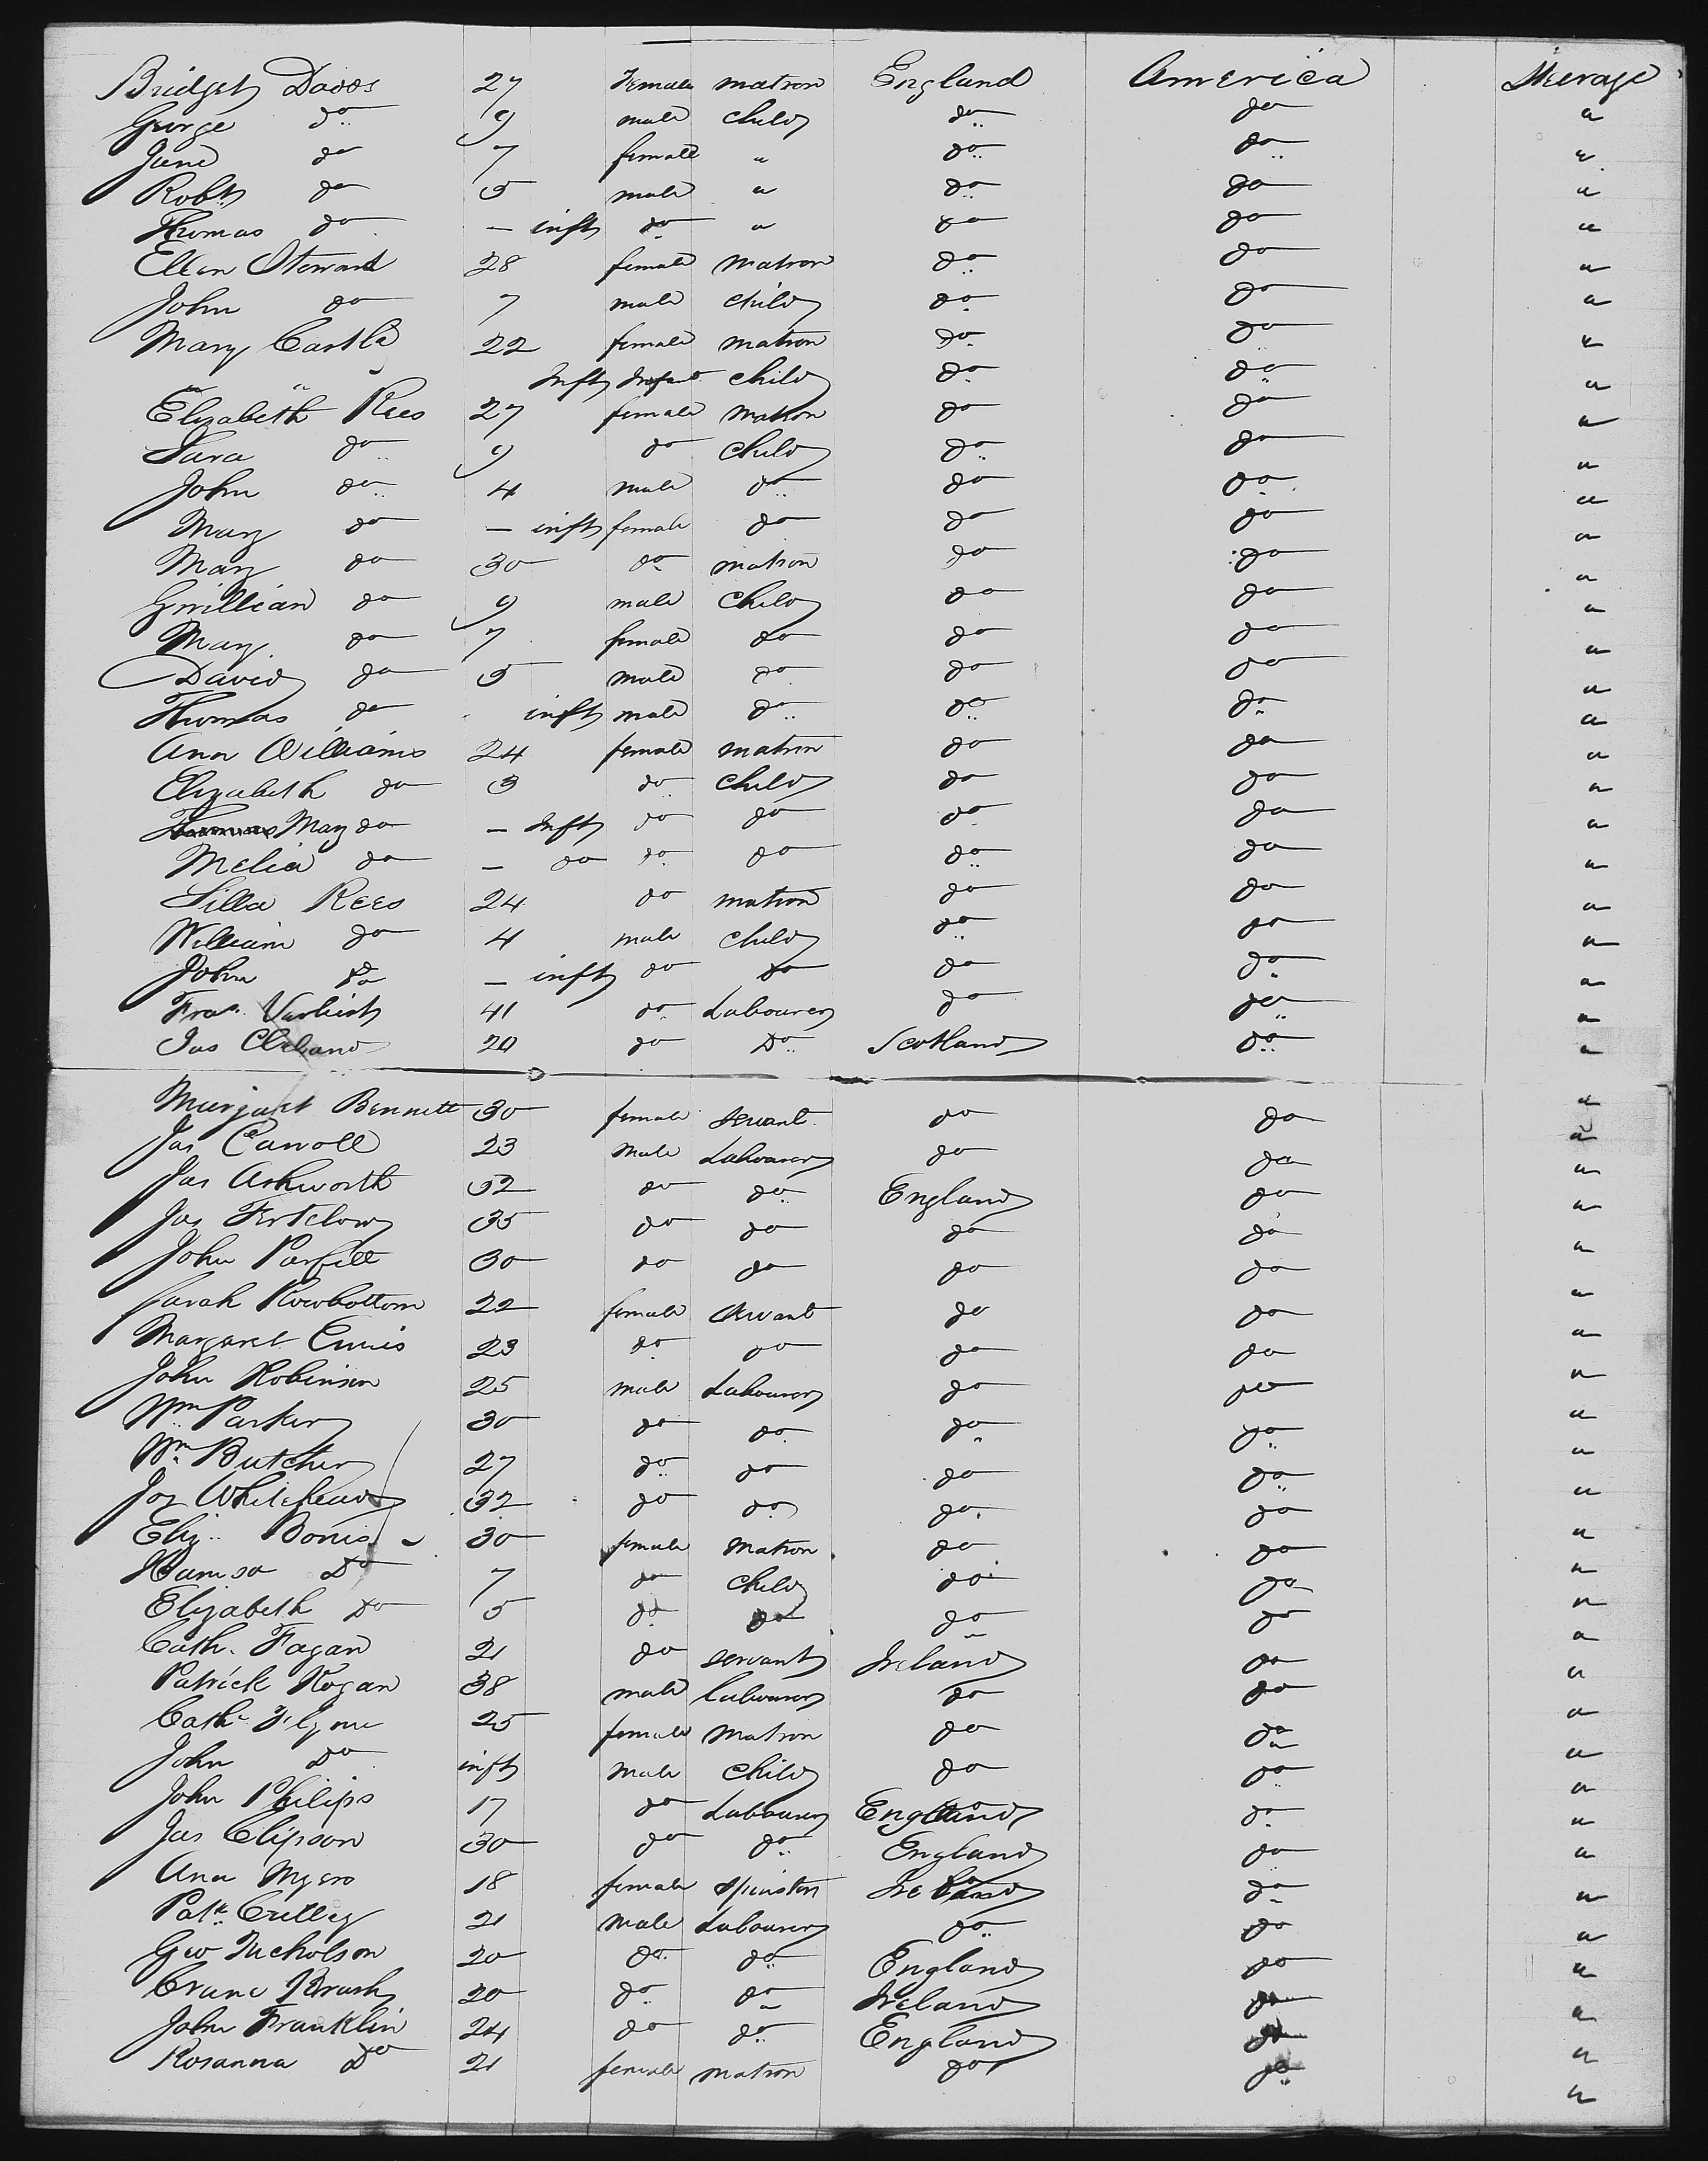 Bridget Davos 27 Female matron England America Steerage
George do 9 male child do do "
Jane do 7 female " do do "
Robt do 5 male " do do "
Thomas do — inft do " do do "
Ellen Steward 28 female matron do do "
John do 7 male child do do "
Mary Castle 22 female matron do do "
" " Inft Infant child do do "
Elizabeth Rees 27 female matron do do "
Sara do 9 do child do do "
John do 4 male do do do "
Mary do — inft female do do do "
Mary do 30 do matron do do "
Gwillian do 9 male child do do "
Mary do 7 female do do do "
David do 5 male do do do "
Thomas do inft male do do do "
Ann Williams 24 female matron do do "
Elizabeth do 3 do child do do "
Thomas Mary do — Inft do do do do "
Melia do — do do do do do "
Silla Rees 24 do matron do do "
William do 4 male child do do "
John Do — inft do do do do "
Fras 41 do Labourer do do "
Jas Cleland 20 do Do Scotland do "
Margaret Bennett 30 female servant do do "
Jas Carroll 23 Male Labourer do do "
Jas Ashworth 32 do do England do "
Jas 35 do do do do "
John Parfitt 30 do do do do "
Sarah Rowbottom 22 female servant do do "
Margaret Ennis 23 do do do do "
John Robinson 25 male Labourer do do "
Wm Parker 30 do do do do "
Wm Butcher 27 do do do do "
Jos Whitehead 32 do do do do "
Eliz Bonis 30 female Matron do do "
Do 7 do child do do "
Elizabeth Do 5 do do do do "
Cath. Fagan 21 do servant Ireland do "
Patrick Hogan 38 male Labourer do do "
Cath 25 female matron do do "
John Do inft male child do do "
John Philips 17 do Labourer England do "
Jas Clipson 30 do do England do "
Ann Myers 18 female spinster Ireland do "
Patk Crilley 21 male Labourer do do "
Geo Nicholson 20 do do England do "
Crane Brush 20 do do Ireland do "
John Franklin 24 do do England do "
Rosanna Do 21 female matron do do "